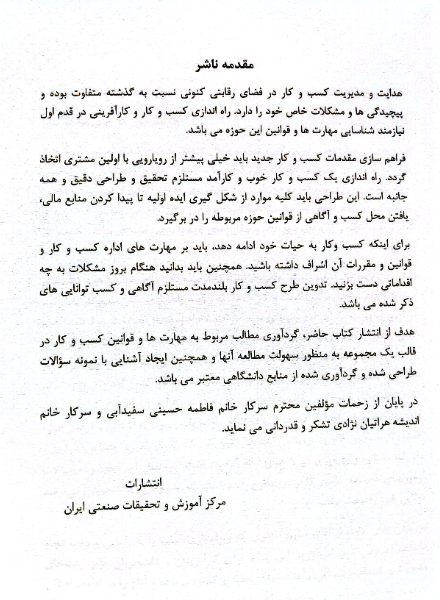 مقدمه ناشر
هدایت و مدیریت کسب و کار در فضای رقابتی کنونی نسبت به گذشته متفاوت بوده و
پیچیدگی ها و مشکلات خاص خود را دارد. راه اندازی کسب و کار و کارآفرینی در قدم اول
نیازمند شناسایی مهارت ها و قوانین این حوزه می باشد.
فراهم سازی مقدمات کسب و کار جدید باید خیلی پیشتر از رویارویی با اولین مشتری اتخاذ
گردد. راه اندازی یک کسب و کار خوب و کارآمد مستلزم تحقیق و طراحی دقیق و همه
جانبه است. این طراحی باید کلیه موارد از شکل گیری ایده اولیه تا پیدا کردن منابع مالی،
یافتن محل کسب و آگاهی از قوانین حوزه مربوطه را در برگیرد.
برای اینکه کسب وکار به حیات خود ادامه دهد، باید بر مهارت های اداره کسب و کار و
قوانین و مقررات آن اشراف داشته باشید. همچنین باید بدانید هنگام بروز مشکلات به چه
اقداماتی دست بزنید. تدوین طرح کسب و کار بلندمدت مستلزم آگاهی و کسب توانایی های
ذکر شده می باشد.
هدف از انتشار کتاب حاضر، گردآوری مطالب مربوط به مهارت ها و قوانین کسب و کار در
قالب یک مجموعه به منظور سهولت مطالعه آنها و همچنین ایجاد آشنایی با نمونه سؤالات
طراحی شده و گردآوری شده از منابع دانشگاهی معتبر می باشد.
در پایان از زحمات مؤلفین محترم سرکار خانم فاطمه حسینی سفیدآبی و سرکار خانم
اندیشه هراتیان نژادی تشکر و قدردانی می نماید.
انتشارات
مرکز آموزش و تحقیقات صنعتی ایران